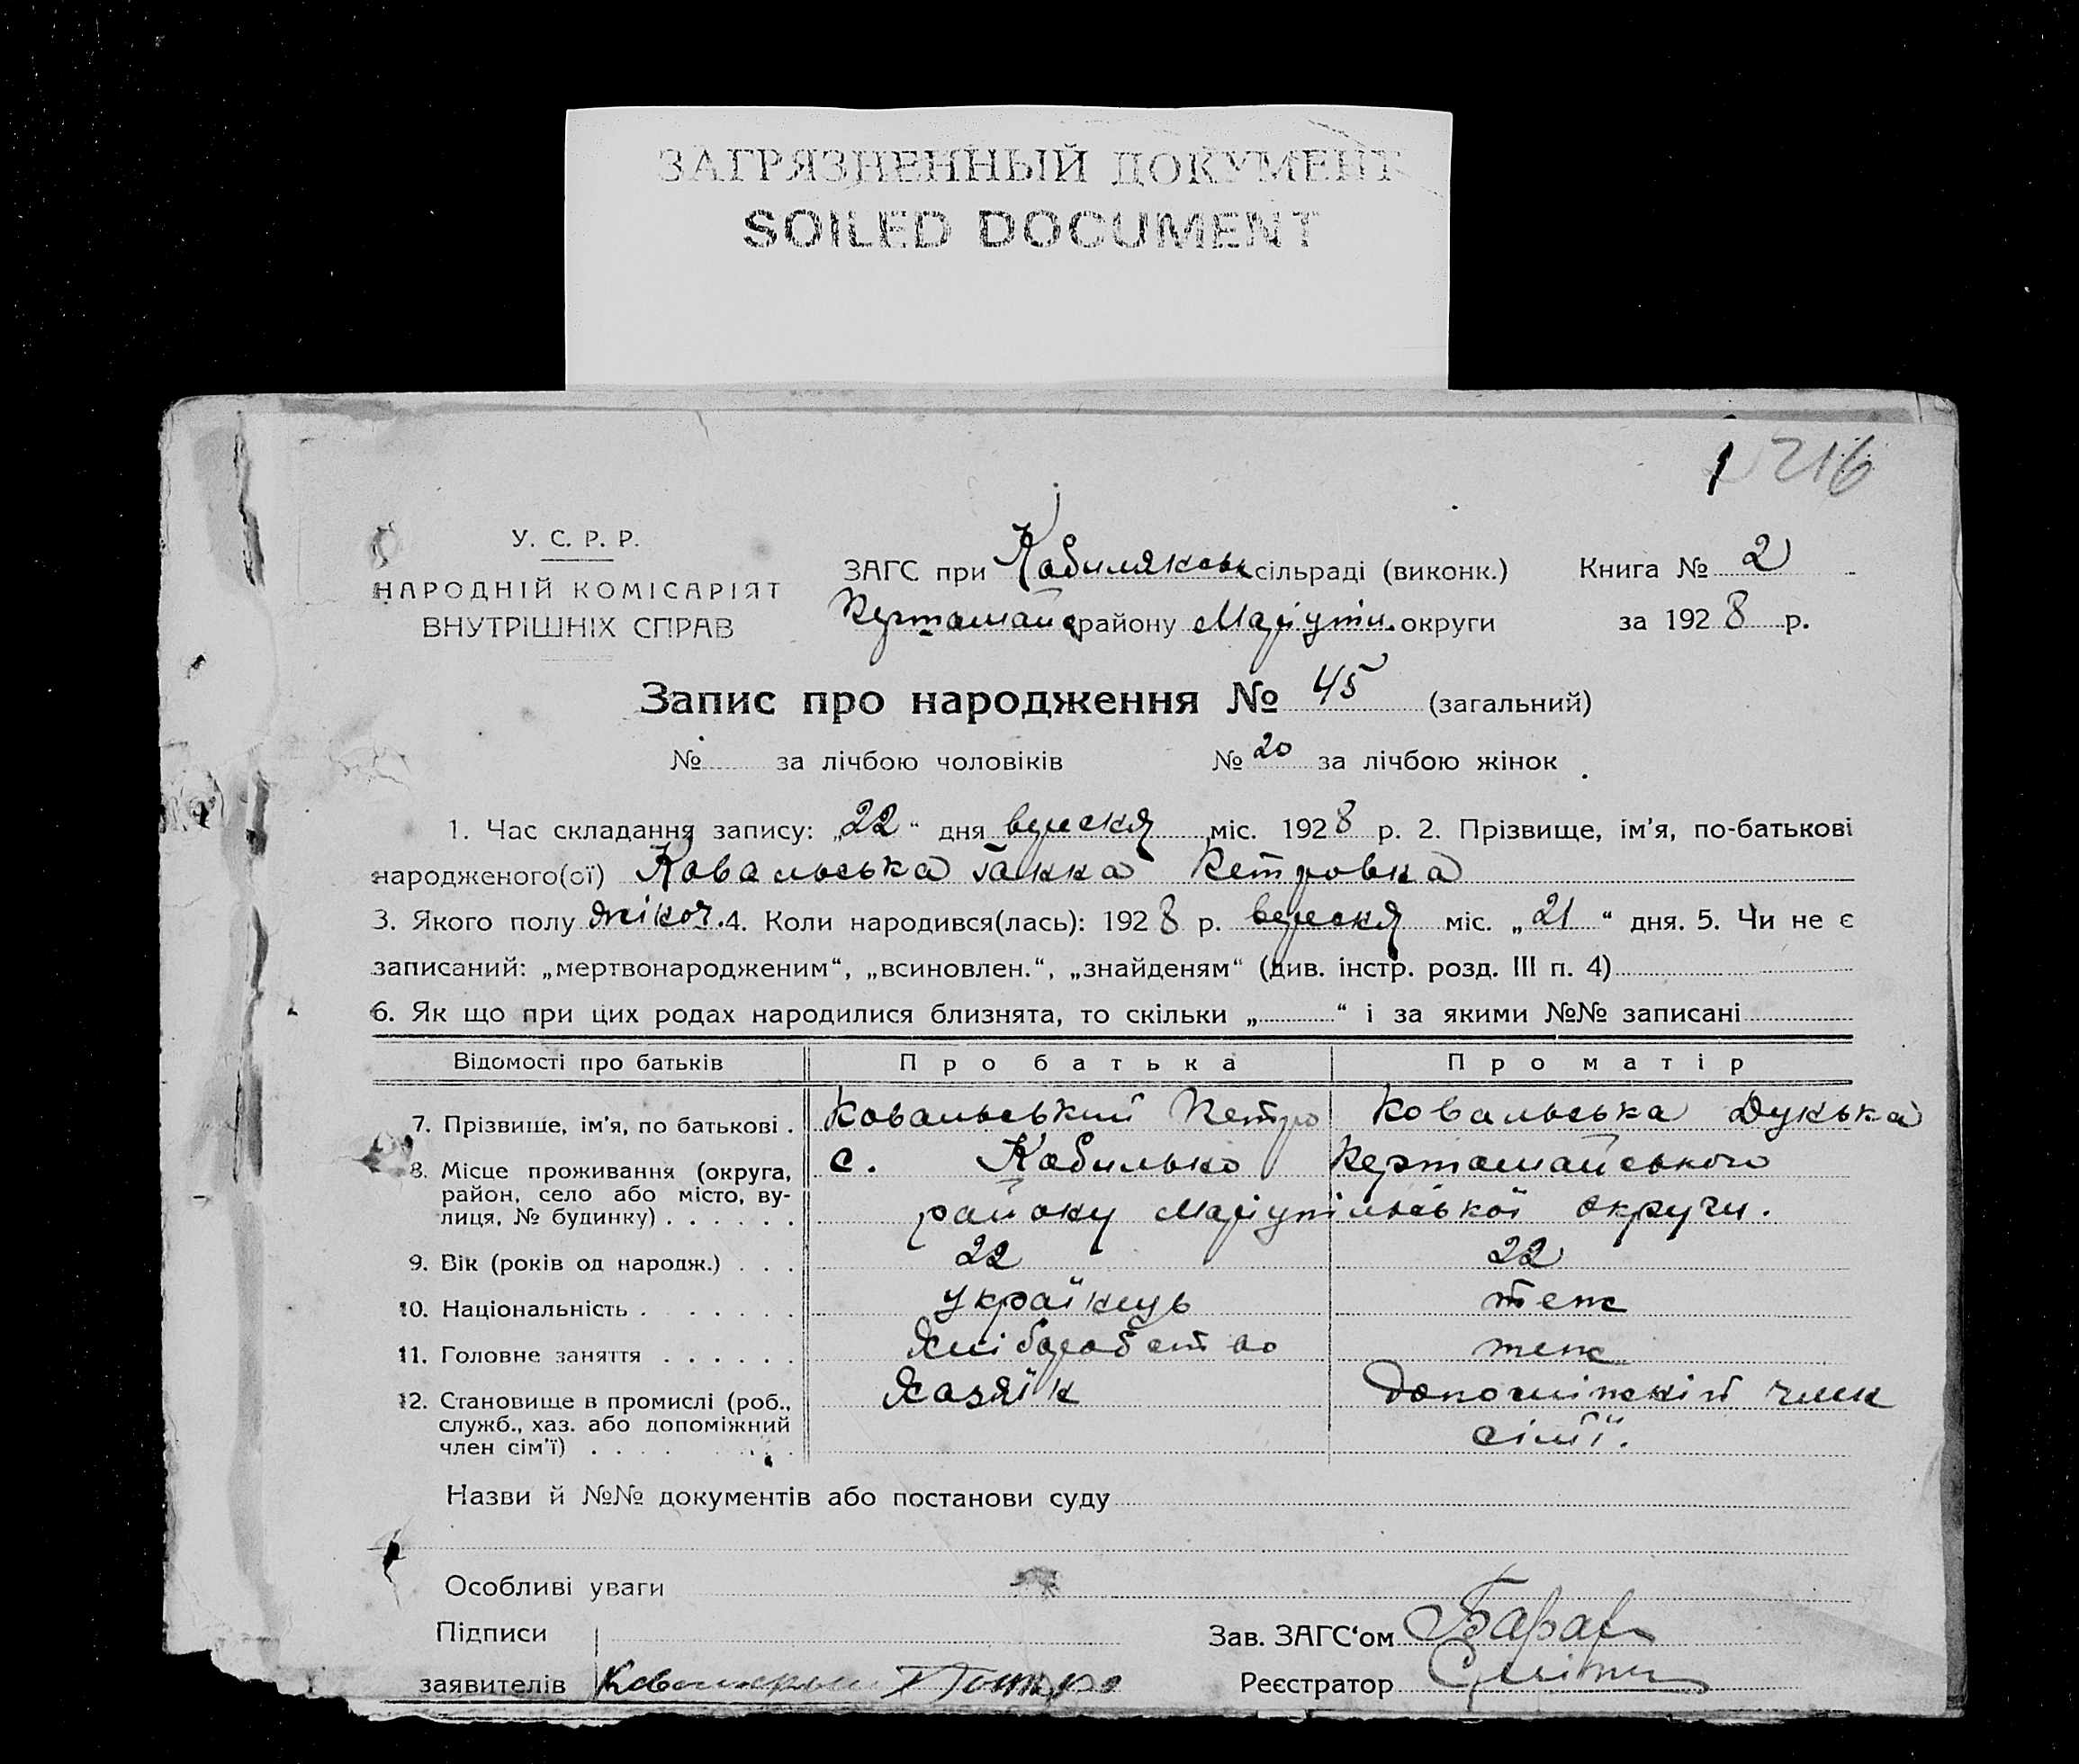 ЗАГРЯЗНЕННЫЙ ДОКУМЕНТ
SOILED DOCUMENT
216
У. С. Р. Р.
НАРОДНІЙ КОМІСАРІЯТ
ВНУТРІШНІХ СПРАВ
ЗАГС при сільраді (виконк.) Книга № 2
району Маріупіл. округи за 1928 р.
Запис про народження № 45 (загальний)
№ за лічбою чоловіків № 20 за лічбою жінок
1. Час складання запису: „22“ дня вересня міс. 1928 р. 2. Прізвище, ім'я, по-батькові
народженого(ої) Ковальська Ганна Петровна
3. Якого полу жіноч. 4. Коли народився(лась): 1928 р. вересня міс. „21“ дня. 5. Чи не є
записаний: „мертвонародженим“, „всиновлен.“, „знайденям“ (див. інстр. розд. III п. 4)
6. Як що при цих родах народилися близнята, то скільки „ “ і за якими №№ записані
Відомості про батьків Про батька Про матір
7. Прізвище, ім'я, по батькові . Ковальський Петро Ковальська Дунька
8. Місце проживання (округа, район, село або місто, ву-лиця, № будинку) . . . . . . с. Кобилько
району Маріупільської округи.
9. Вік (років од народж.) . . . 22 22
10. Національність . . . . . . . українець теж
11. Головне заняття . . . . . . Хліборобство теж
12. Становище в промислі (роб., служб., хаз. або допоміжний член сім'ї) . . . . . . . Хазяїн Допоміжній член
сімї.
Назви й №№ документів або постанови суду
Особливі уваги
Підписи
заявителів Петро
Зав. ЗАГС‘ом
Реєстратор